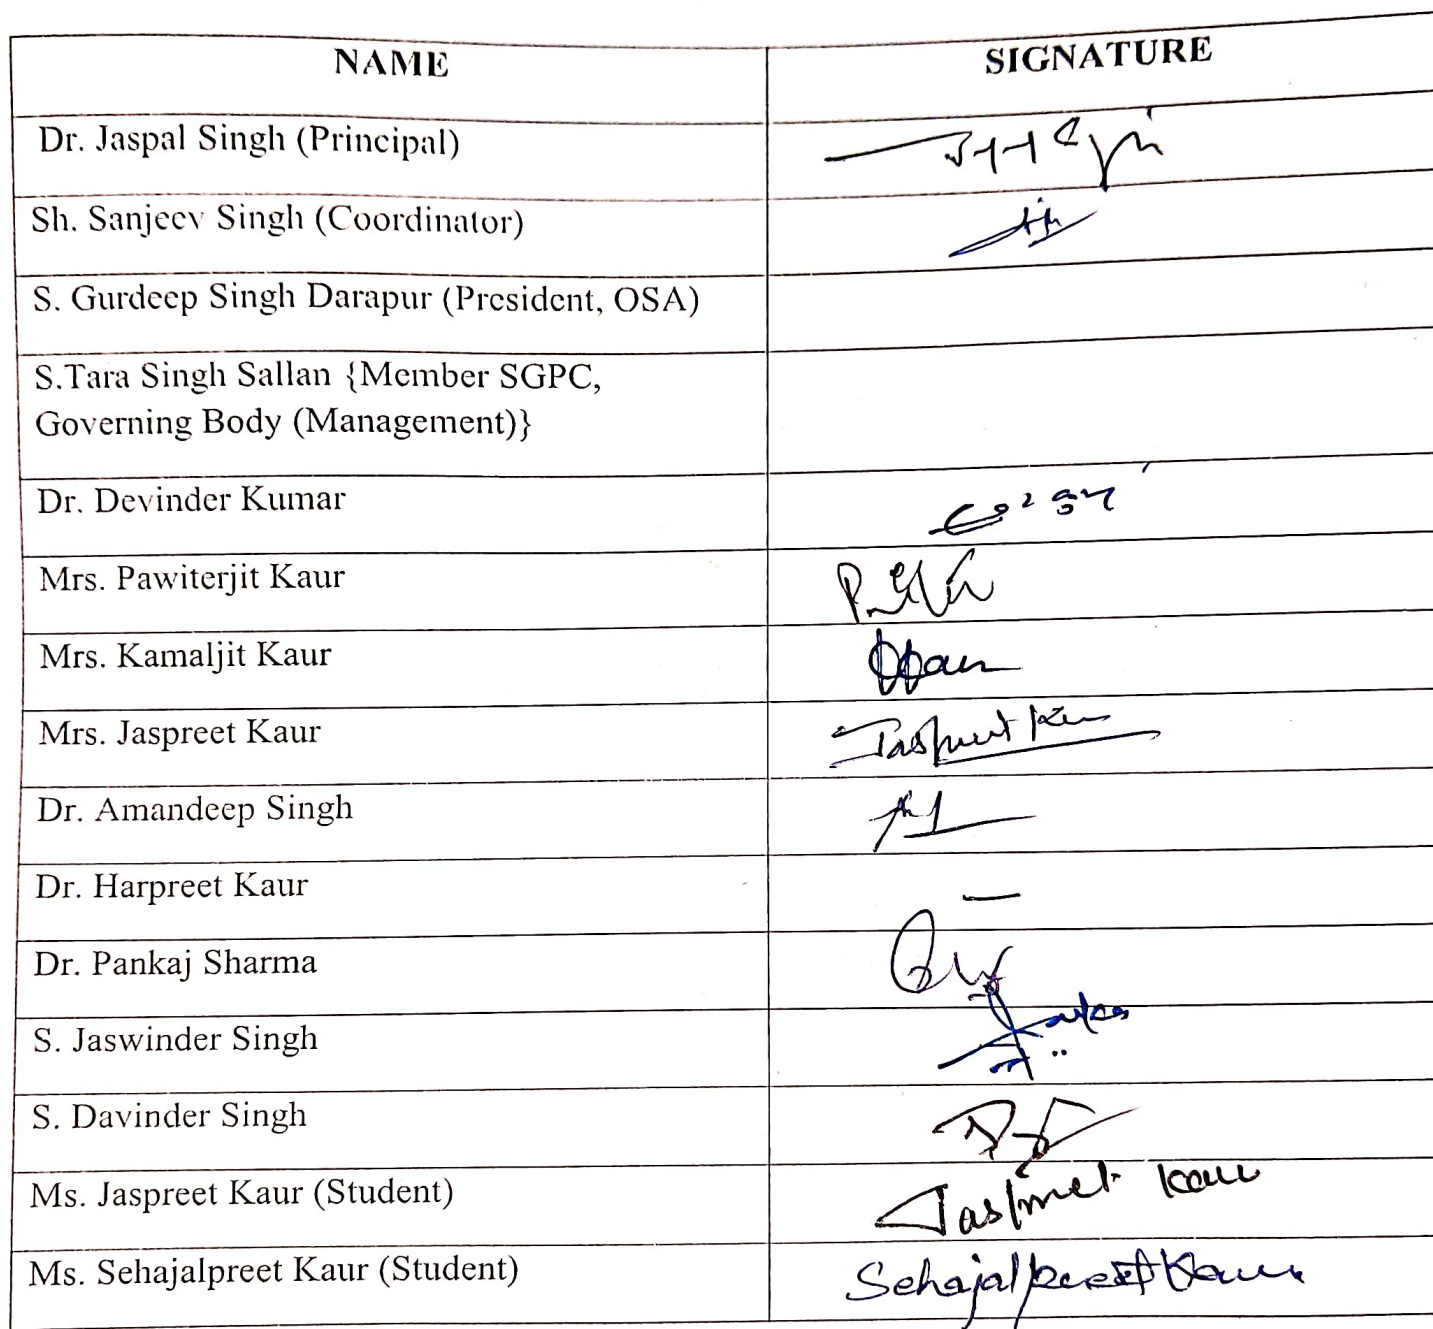 NAME SIGNATURE
Dr. Jaspal Singh (Principal)
Sh. Sanjeev Singh (Coordinator)
S. Gurdeep Singh Darapur (President, OSA)
S.Tara Singh Sallan {Member SGPC,
Governing Body (Management)}
Dr. Devinder Kumar
Mrs. Pawiterjit Kaur
Mrs. Kamaljit Kaur
Mrs. Jaspreet Kaur Jaspreet Kau
Dr. Amandeep Singh
Dr. Harpreet Kaur —
Dr. Pankaj Sharma
S. Jaswinder Singh
S. Davinder Singh
Ms. Jaspreet Kaur (Student) Jaspreet Kaur
Ms. Sehajalpreet Kaur (Student) Sehajalpreet Kaur